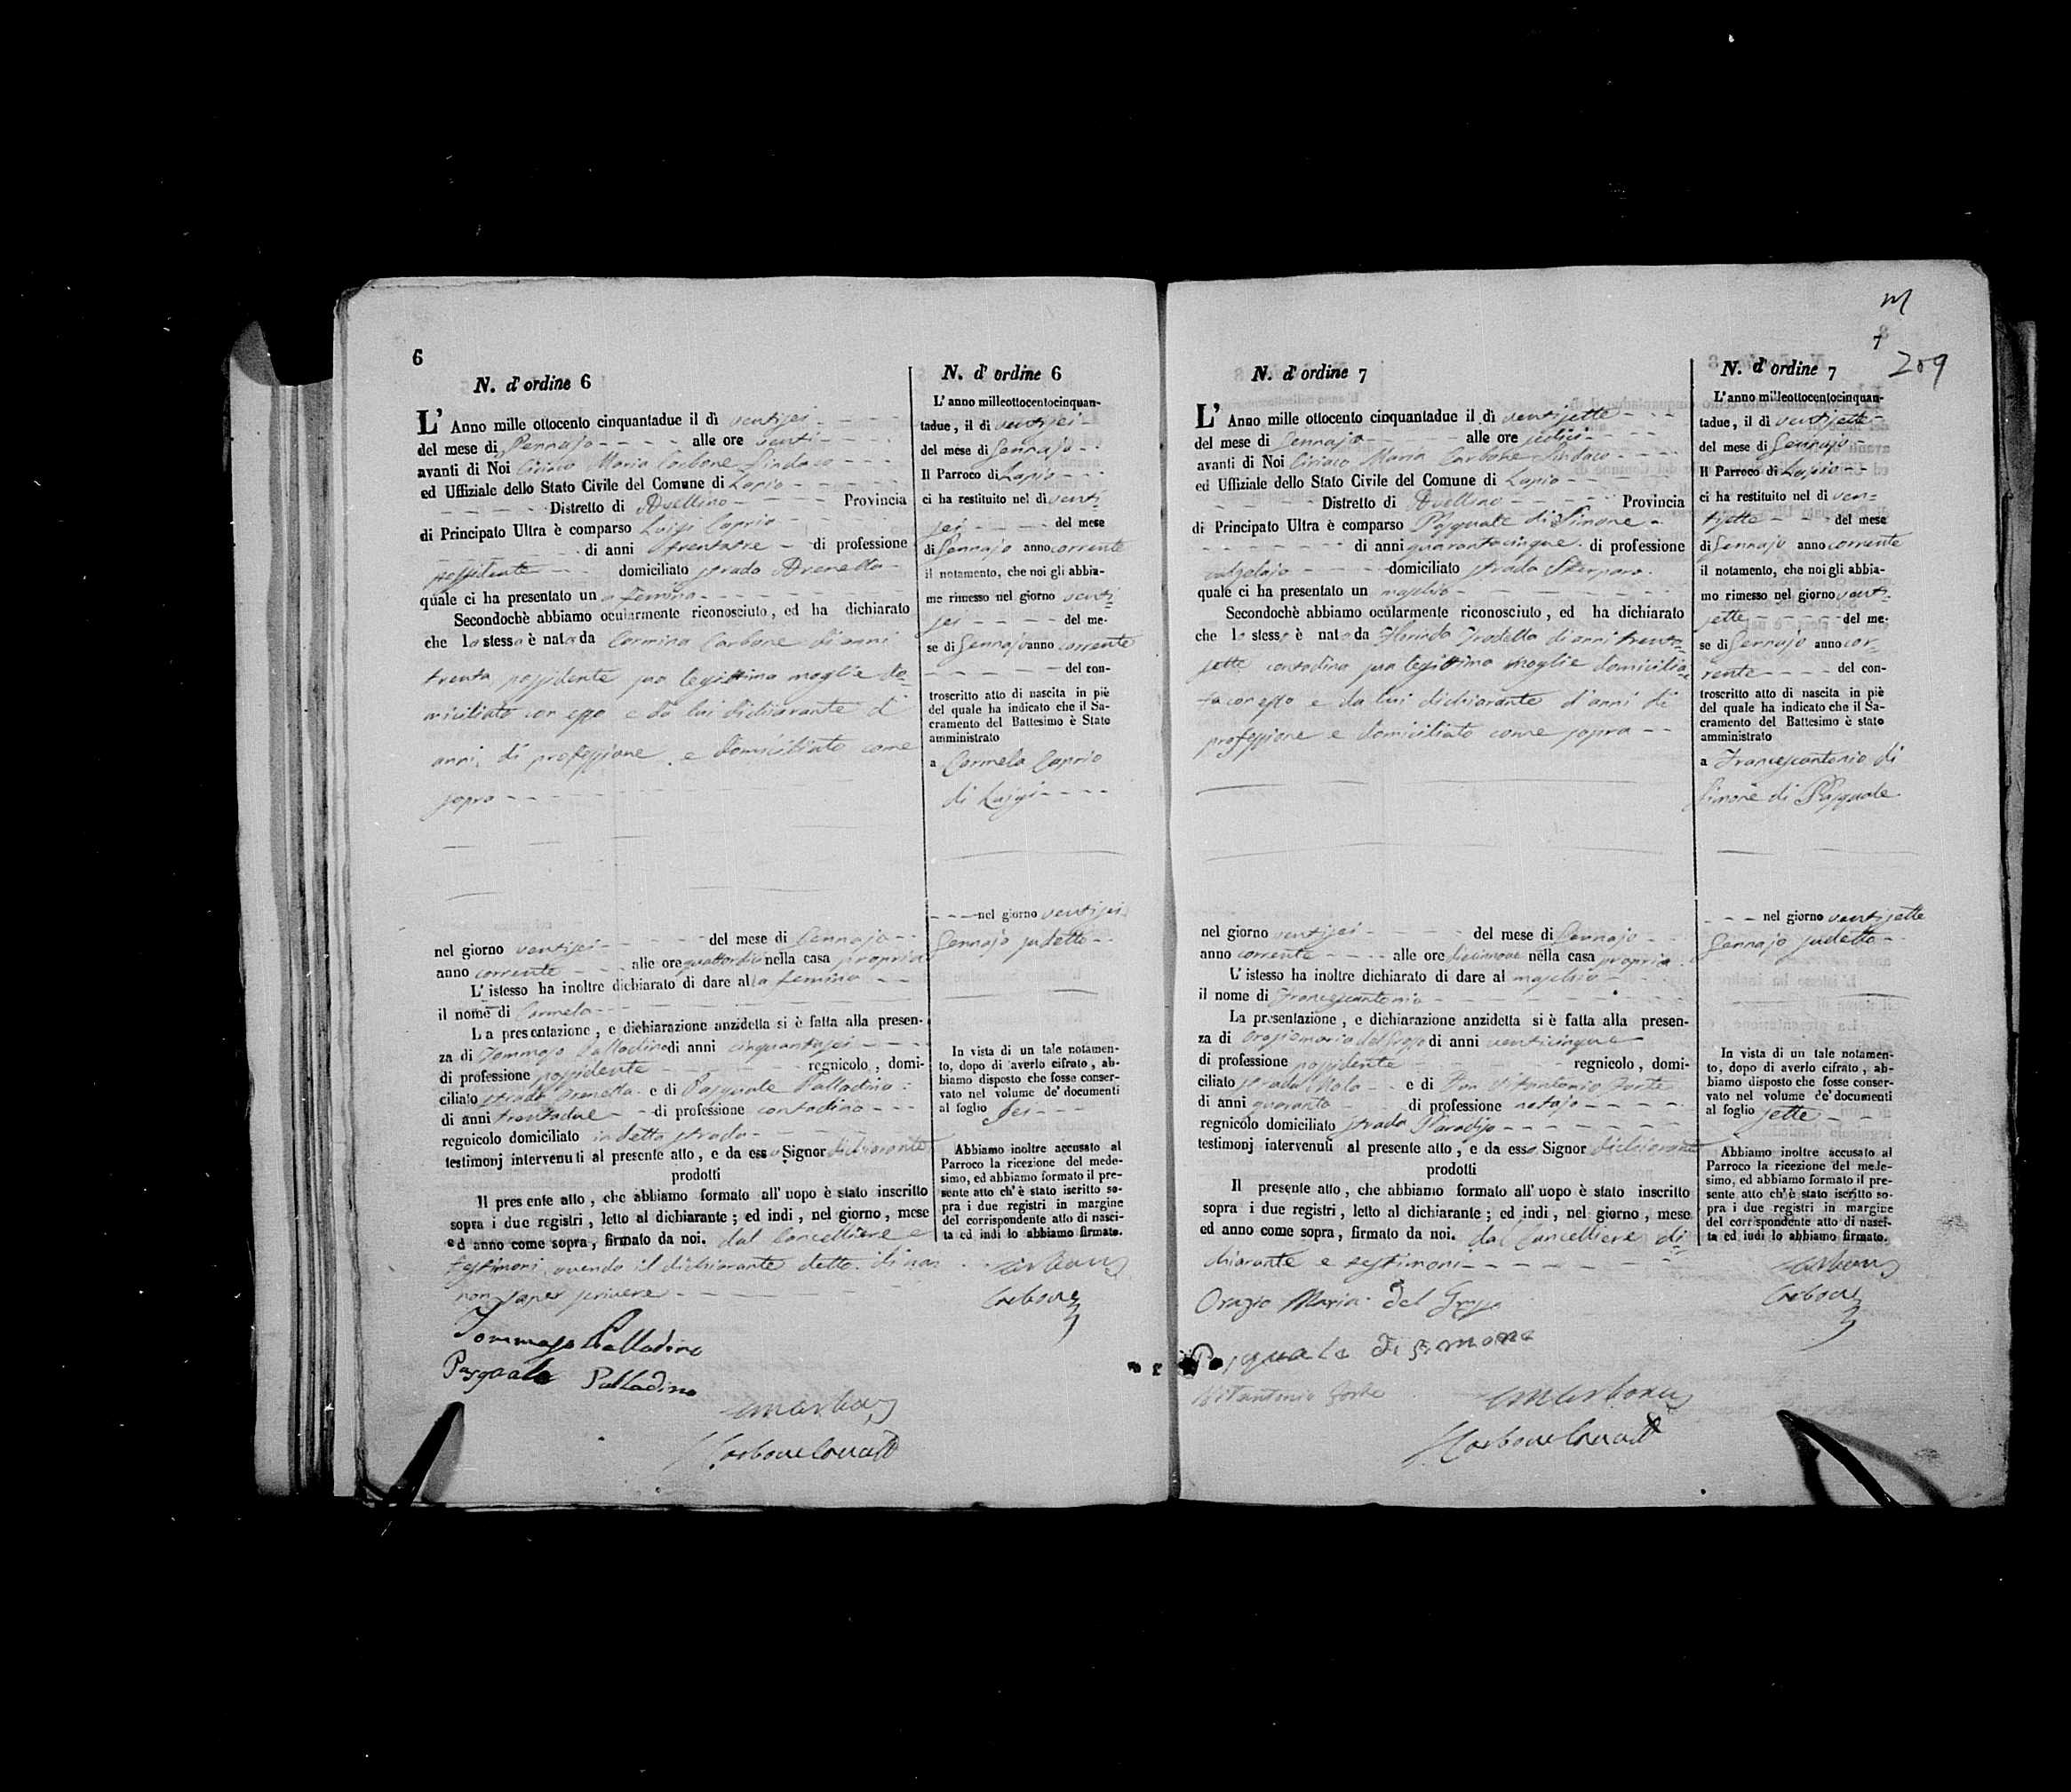 6
N. d'ordine 6
L' Anno mille ottocento cinquantadue il dì ventisei
del mese di Gennajo alle ore venti
avanti di Noi Ciriaco Maria Carbone Sindaco
ed Uffiziale dello Stato Civile del Comune di Lapio
Distretto di Avellino Provincia
di Principato Ultra è comparso Luigi Caprio
di anni trentatre di professione
possidente domiciliato strada Arenella
quale ci ha presentato una femina
Secondochè abbiamo ocularmente riconosciuto, ed ha dichiarato
che la stessa è nata da Carmina Carbone di anni
trenta possidente sua legittima moglie do-
miciliata con esso e da lui dichiarante di
anni, di professione, e domiciliato come
sopra
nel giorno ventisei del mese di Gennajo
anno corrente alle ore quattordici nella casa propria
L' istesso ha inoltre dichiarato di dare alla femina
il nome di Carmela
La presentazione, e dichiarazione anzidetta si è fatta alla presen-
za di Tommaso Palladino di anni cinquantasei
di professione possidente regnicolo, domi-
ciliato strada Arenella e di Pasquale Palladino
di anni trentadue di professione contadino
regnicolo domiciliato in detta strada
testimonj intervenuti al presente atto, e da esso Signor dichiarante
prodotti
Il presente atto, che abbiamo formato all' uopo è stato inscritto
sopra i due registri, letto al dichiarante; ed indi, nel giorno, mese
ed anno come sopra, firmato da noi. dal Cancelliere e
testimoni, avendo il dichiarante detto di non
non saper scrivere
Tommaso Palladino
Pasquale Palladino
N. d' ordine 6
L' anno milleottocentocinquan-
tadue, il di ventisei
del mese di Gennajo
Il Parroco di Lapio
ci ha restituito nel dì venti
sei del mese
di Gennajo anno corrente
il notamento, che noi gli abbia-
mo rimesso nel giorno venti
sei del me-
se di Gennajo anno corrente
del con-
troscritto atto di nascita in piè
del quale ha indicato che il Sa-
cramento del Battesimo è Stato
amministrato
a Carmela Caprio
di Luigi
nel giorno ventisei
Gennajo sudetto
In vista di un tale notamen-
to, dopo di averlo cifrato, ab-
biamo disposto che fosse conser-
vato nel volume de' documenti
al foglio sei
Abbiamo inoltre accusato al
Parroco la ricezione del mede-
simo, ed abbiamo formato il pre-
sente atto ch' è stato iscritto so-
pra i due registri in margine
del corrispondente atto di nasci-
ta ed indi lo abbiamo firmato.
Carbone
7
209
N. d' ordine 7
L' Anno mille ottocento cinquantadue il dì ventisette
del mese di Gennajo alle ore sedici
avanti di Noi Ciriaco Maria Carbone Sindaco
ed Uffiziale dello Stato Civile del Comune di Lapio
Distretto di Avellino Provincia
di Principato Ultra è comparso Pasquale di Simone
di anni quarantacinque di professione
calzolajo domiciliato strada
quale ci ha presentato un maschio
Secondochè abbiamo ocularmente riconosciuto, ed ha dichiarato
che lo stesso è nato da Florinda Trodella di anni trenta
sette contadina sua legittima moglie domicilia
ta con esso e da lui dichiarante d'anni di
professione e domiciliato come sopra
nel giorno ventisei del mese di Gennajo
anno corrente alle ore diecinove nella casa propria
L' istesso ha inoltre dichiarato di dare al maschio
il nome di Francescantonio
La presentazione, e dichiarazione anzidetta si è fatta alla presen-
za di Oraziomaria del Grosso di anni venticinque
di professione possidente regnicolo, domi-
ciliato strada e di Don Vitantonio Forte
di anni quaranta di professione notajo
regnicolo domiciliato strada Paradiso
testimonj intervenuti al presente atto, e da esso Signor dichiarante
prodotti
Il presente atto, che abbiamo formato all' uopo è stato inscritto
sopra i due registri, letto al dichiarante; ed indi, nel giorno, mese
ed anno come sopra, firmato da noi. dal Cancelliere di-
chiarante e testimoni
Orazio Maria del Grosso
Pasquale di Simone
Vitantonio Forte
N. d' ordine 7
L' anno milleottocentocinquan-
tadue, il di ventisette
del mese di Gennajo
Il Parroco di Lapio
ci ha restituito nel di ven=
tisette del mese
di Gennajo anno corrente
il notamento, che noi gli abbia-
mo rimesso nel giorno venti-
sette del me-
se di Gennajo anno cor-
rente del con-
troscritto atto di nascita in piè
del quale ha indicato che il Sa-
cramento del Battesimo è stato
amministrato
a Francescantonio di
Simone di Pasquale
nel giorno ventisette
Gennajo sudetto
In vista di un tale notamen-
to, dopo di averlo cifrato, ab-
biamo disposto che fosse conser-
vato nel volume de' documenti
al foglio sette
Abbiamo inoltre accusato al
Parroco la ricezione del mede-
simo, ed abbiamo formato il pre-
sente atto ch' è stato iscritto so-
pra i due registri in margine
del corrispondente atto di nasci-
ta ed indi lo abbiamo firmato.
Carbone